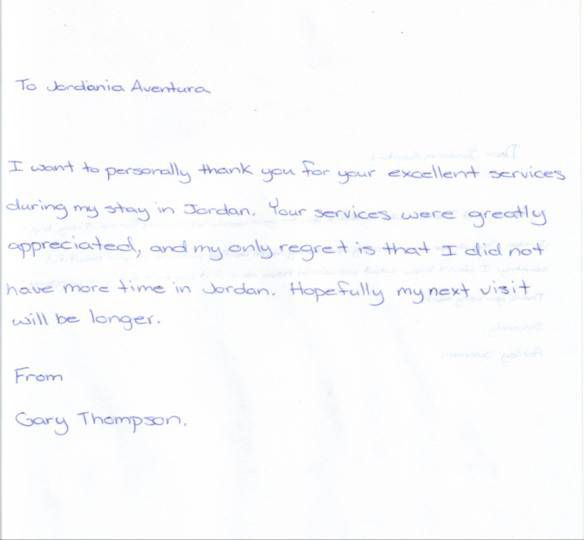 To Jordania Aventura
I want to personally thank you for your excellent services
during my stay in Jordan. Your services were greatly
appreciated, and my only regret is that I did not
have more time in Jordan. Hopefully my next visit
will be longer.
From
Gary Thompson.